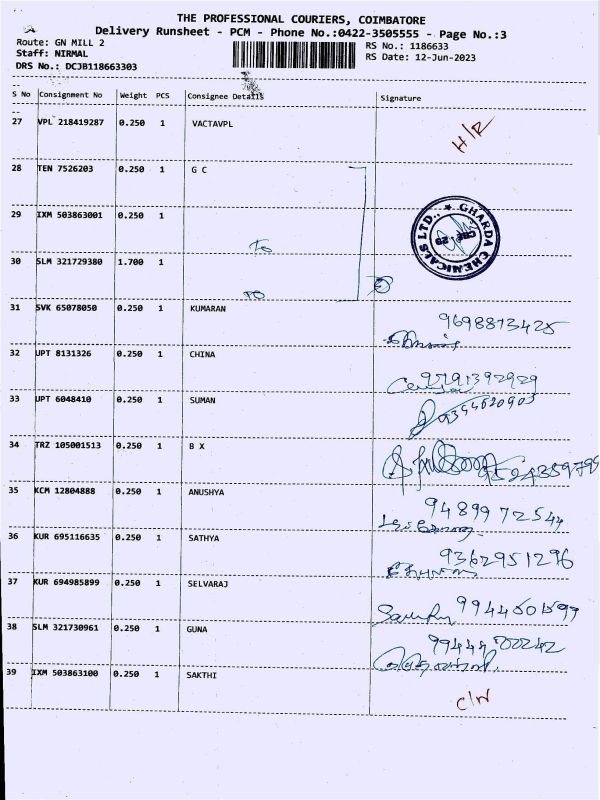 THE PROFESSIONAL COURIERS, COIMBATORE
Delivery Runsheet - PCM - Phone No.:0422-3505555 - Page No.:3
Route: GN MILL 2
RS No.: 1186633
Staff: NIRMAL
RS Date: 12-Jun-2023
DRS No.: DCJB118663303
S No Consignment No Weight PCS Consignee Details Signature
27 VPL 218419287 0.250 1 VACTAVPL H/R
28 TEN 7526203 0.250 1 G C
GHARDA CHEMICALS LTD.,
29 IXM 503863001 0.250 1
To
30 SLM 321729380 1.700 1
31 SVK 65078050 0.250 1 KUMARAN
9698873425
32 UPT 8131326 0.250 1 CHINA
9791392929
33 UPT 6048410 0.250 1 SUMAN
34 TRZ 105001513 0.250 1 B X
35 KCM 12804888 0.250 1 ANUSHYA
9489972544
36 KUR 695116635 0.250 1 SATHYA
9362951296
37 KUR 694985899 0.250 1 SELVARAJ
38 SLM 321730961 0.250 1 GUNA
39 IXM 503863100 0.250 1 SAKTHI
C/N